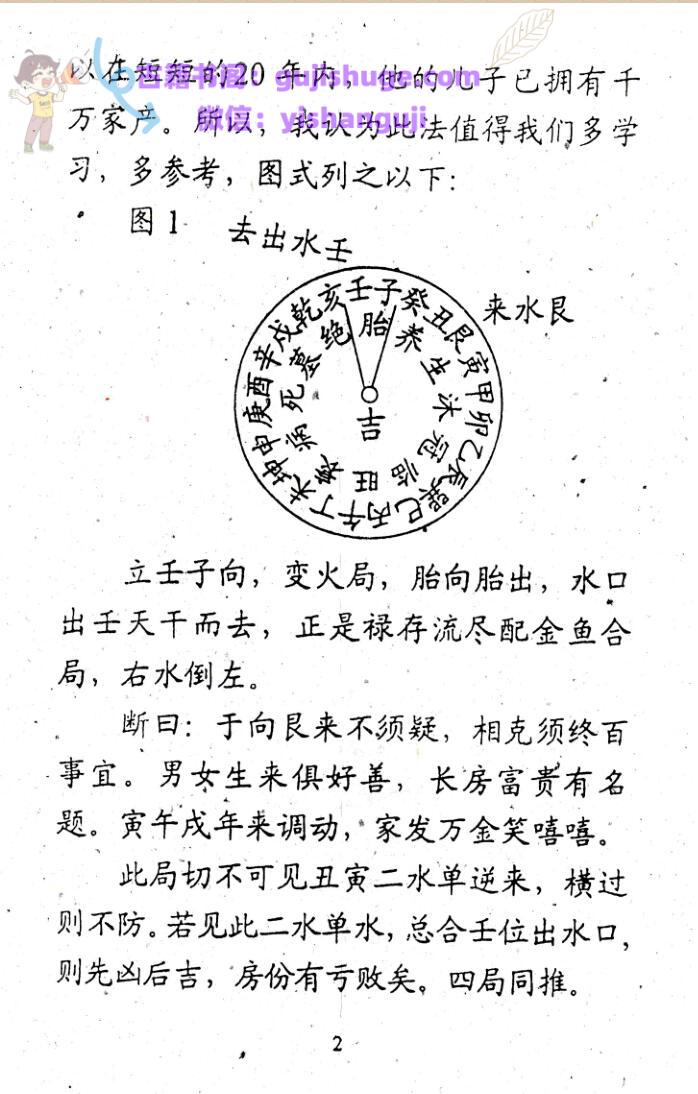 以在短短的20年内，他的儿子已拥有千
古籍书阁：gujishuge.com
万家产。所以，我认为此法值得我们多学
微信：yishanguji
习，多参考，图式列之以下：
图1
去出水壬
来水艮
壬子癸丑艮寅甲卯乙辰巽巳丙午丁未坤申庚酉辛戌乾亥
胎养生沐冠临旺衰病死墓绝
吉
立壬子向，变火局，胎向胎出，水口
出壬天干而去，正是禄存流尽配金鱼合
局，右水倒左。
断曰：于向艮来不须疑，相克须终百
事宜。男女生来俱好善，长房富贵有名
题。寅午戌年来调动，家发万金笑嘻嘻。
此局切不可见丑寅二水单逆来，横过
则不防。若见此二水单水，总合壬位出水口，
则先凶后吉，房份有亏败矣。四局同推。
2